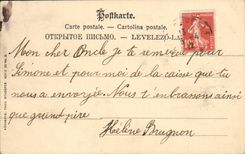 Postkarte.
Carte postale. — Cartolina postale.
ОТКРЫТОЕ ПИСЬМО. — LEVELEZŐ-LA
Mon cher Oncle je te remercie pour
Simone et pour moi de la caisse que tu
nous a envoyée. Nous t'embrassons ainsi
que grand père
Hélène Brugnon